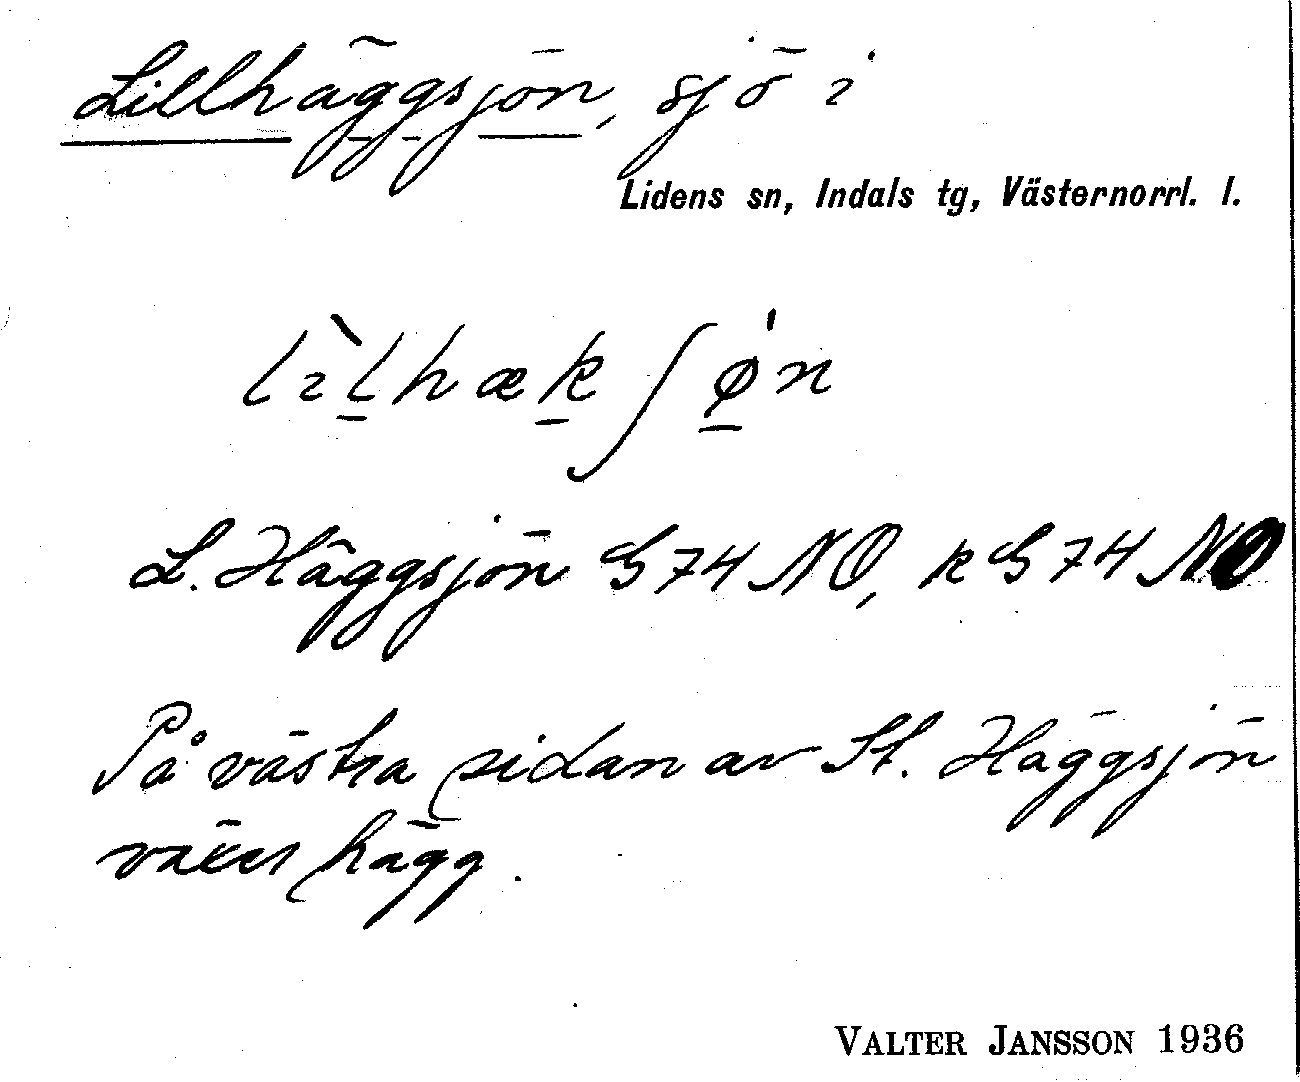 Lillhäggsjön, sjö i
Lidens sn, Indals tg, Västernorrl. l.
lìlhækʃø̍n
L. Häggsjön G 74 NO, k G 74 NO
På västra sidan av St. Häggsjön
växer hägg.
VALTER JANSSON 1936